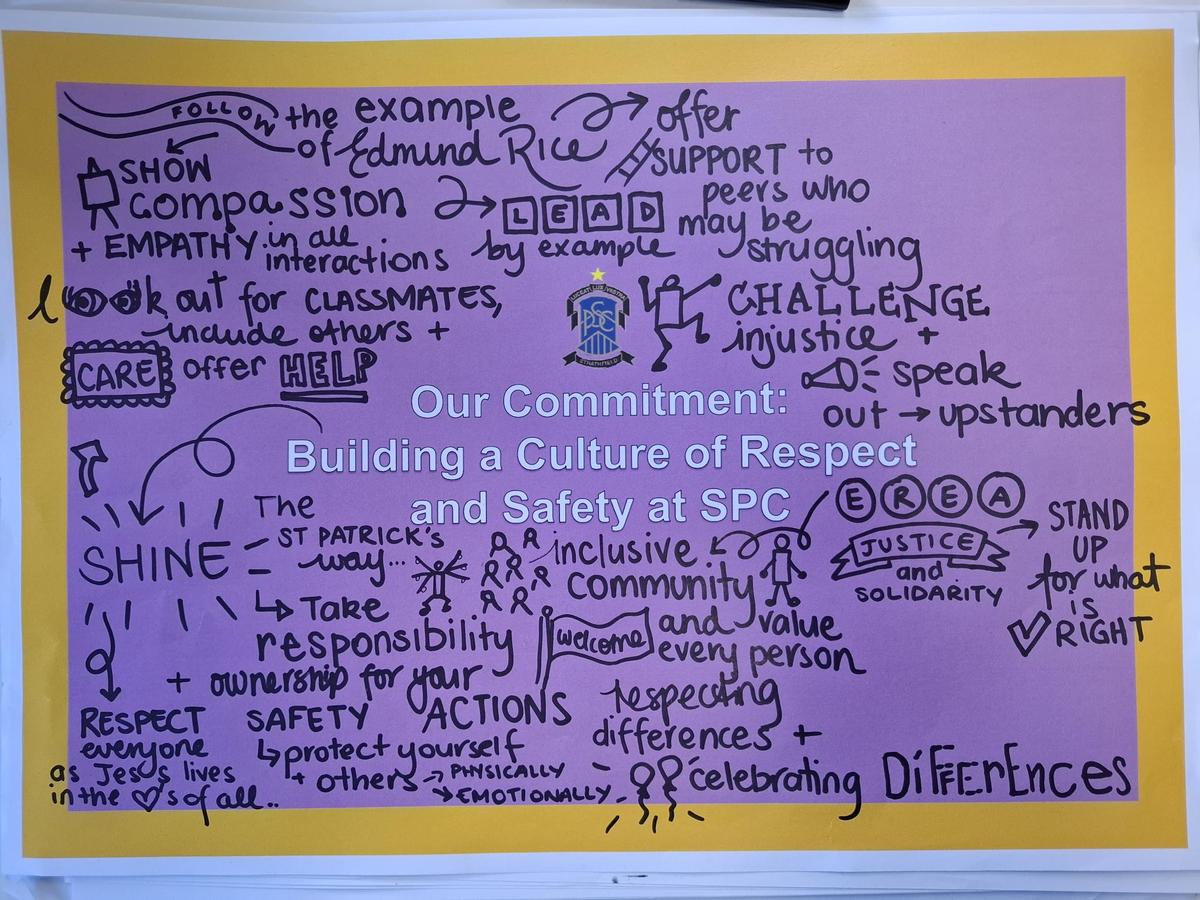 FOLLOW the example
of Edmund Rice
offer
SUPPORT to
peers who
may be
struggling
SHOW
compassion
+ EMPATHY in all
interactions
LEAD
by example
look out for CLASSMATES,
include others +
CARE offer HELP
CHALLENGE
injustice +
speak
out → upstanders
STRATHFIELD
Our Commitment:
Building a Culture of Respect
and Safety at SPC
SHINE
The
ST PATRICK'S
way...
↳ Take
responsibility
+ ownership for your
ACTIONS
inclusive
community
welcome
and value
every person
respecting
differences +
celebrating DIFFERENCES
EREA
JUSTICE
and
SOLIDARITY
STAND
UP
for what
is
RIGHT
RESPECT
everyone
as Jesus lives
in the ♡'s of all..
SAFETY
↳ protect yourself
+ others → PHYSICALLY
→ EMOTIONALLY